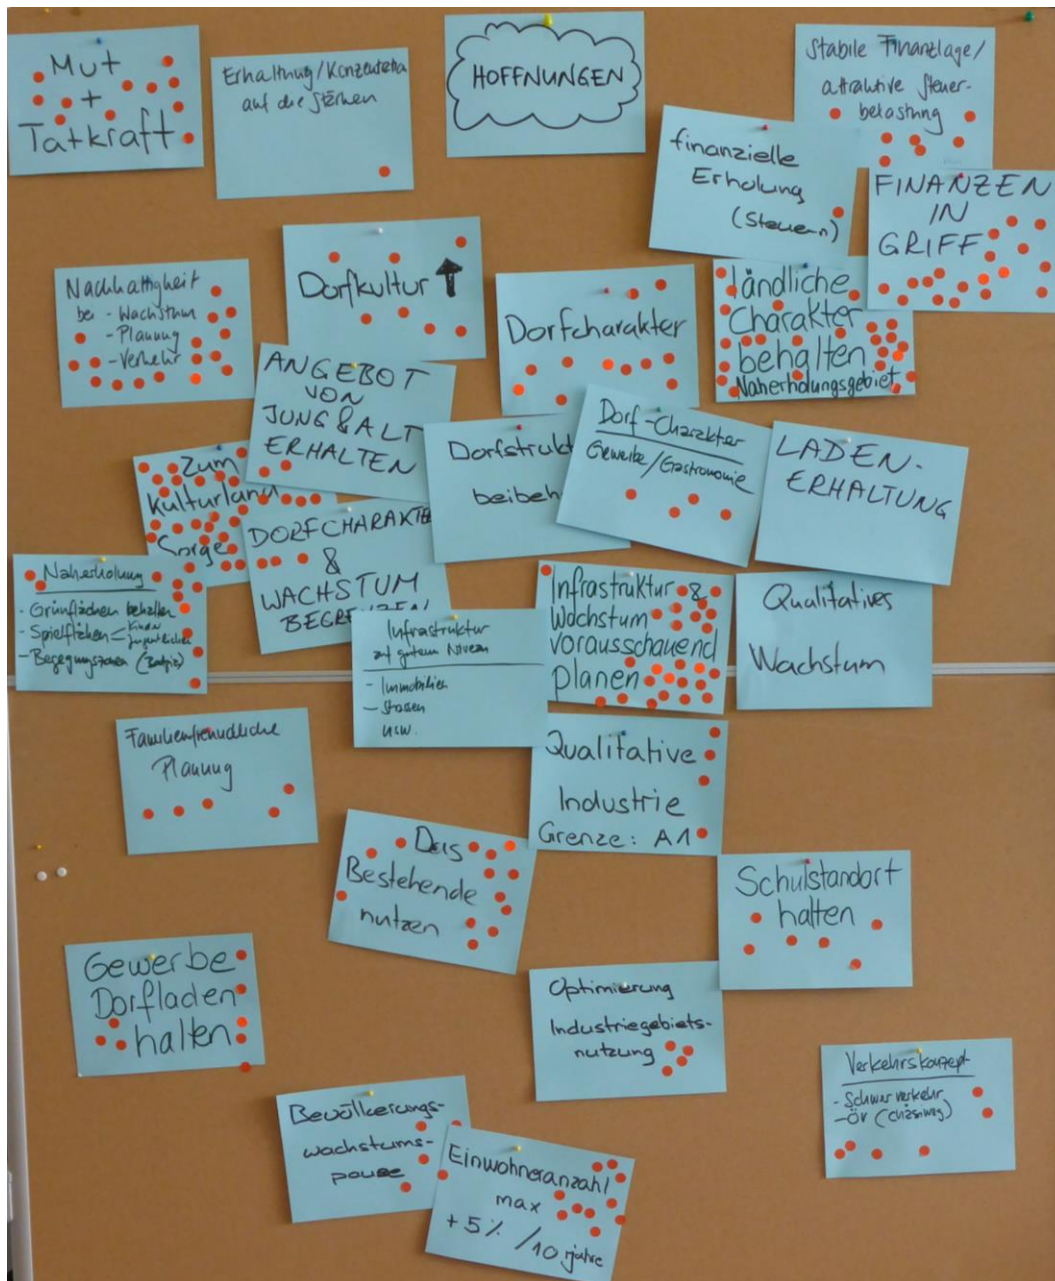 Mut
+
Tatkraft
Erhaltung/Konzentration
auf die Stärken
HOFFNUNGEN
Stabile Finanzlage/
attraktive Steuer-
belastung
finanzielle
Erholung
(Steuern)
FINANZEN
IN
GRIFF
Nachhaltigkeit
bei - Wachstum
- Planung
- Verkehr
Dorfkultur ↑
Dorfcharakter
ländliche
Charakter
behalten
Naherholungsgebiet
ANGEBOT
VON
JUNG & ALT
ERHALTEN
Dorfstrukt
beibeh
Dorf-Charakter
Gewerbe/Gastronomie
LADEN-
ERHALTUNG
Zum
Kulturland
Sorge
DORFCHARAKTE
&
WACHSTUM
BEGRENZEN
Naherholung
- Grünflächen behalten
- Spielflächen < Kinder
Jugendlichen
- Begegnungszonen
Infrastruktur
auf gutem Niveau
- Immobilien
- Strassen
usw.
Infrastruktur &
Wachstum
vorausschauend
planen
Qualitatives
Wachstum
Familienfreundliche
Planung
Qualitative
Industrie
Grenze: A1
Das
Bestehende
nutzen
Schulstandort
halten
Gewerbe
Dorfladen
halten
Optimierung
Industriegebiets-
nutzung
Verkehrskonzept
- Schwerverkehr
- ÖV
Bevölkerungs-
wachstums-
pause
Einwohneranzahl
max
+ 5% / 10 Jahre